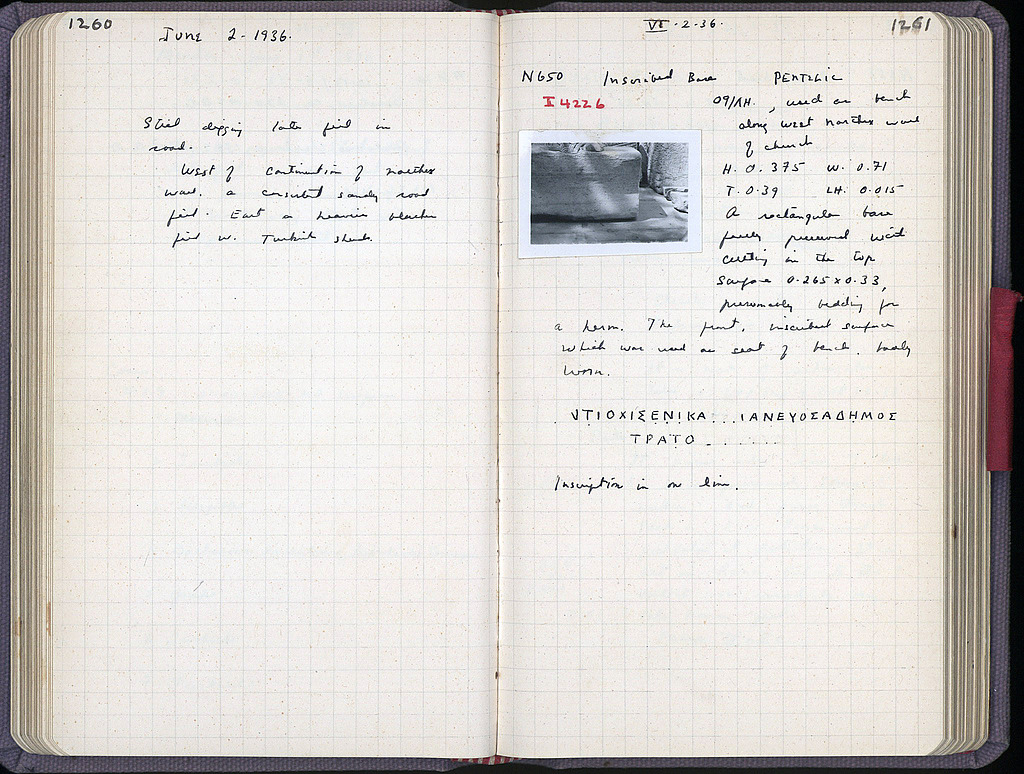 1260
June 2 - 1936.
Still digging late fill in
road.
West of continuation of narthex
wall, a consistent sandy road
fill. East a heavier blacker
fill w. Turkish sherds.
VI · 2 · 36 ·
1261
N650 Inscribed Base PENTELIC
I 4226
09/ΛΗ. , used as bench
along west narthex wall
of church
H. 0.375 W. 0.71
T. 0.39 LH. 0.015
A rectangular base
fairly preserved with
cutting in the top
surface 0.265 x 0.33,
presumably bedding for
a herm. The front, inscribed surface
which was used as seat of bench, badly
worn.
ΝΤΙΟΧΙΣΕΝΙΚΑ...ΙΑΝΕΥΟΣΑΔΗΜΟΣ
ΤΡΑΤΟ . . . . . .
Inscription in one line.